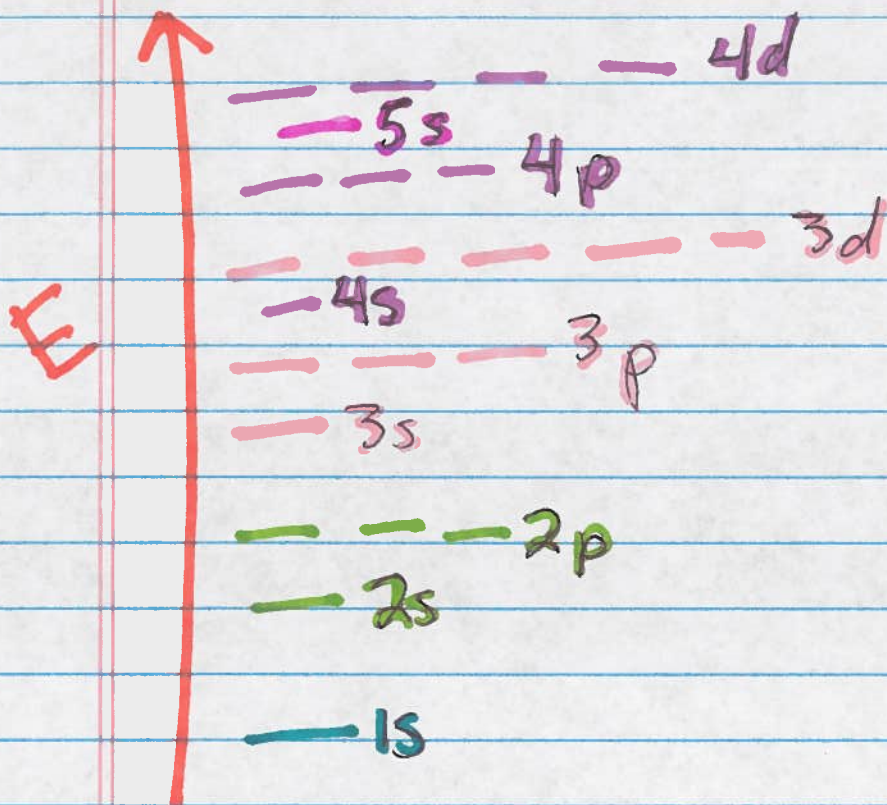 4d
5s
4p
3d
4s
E
3p
3s
2p
2s
1s